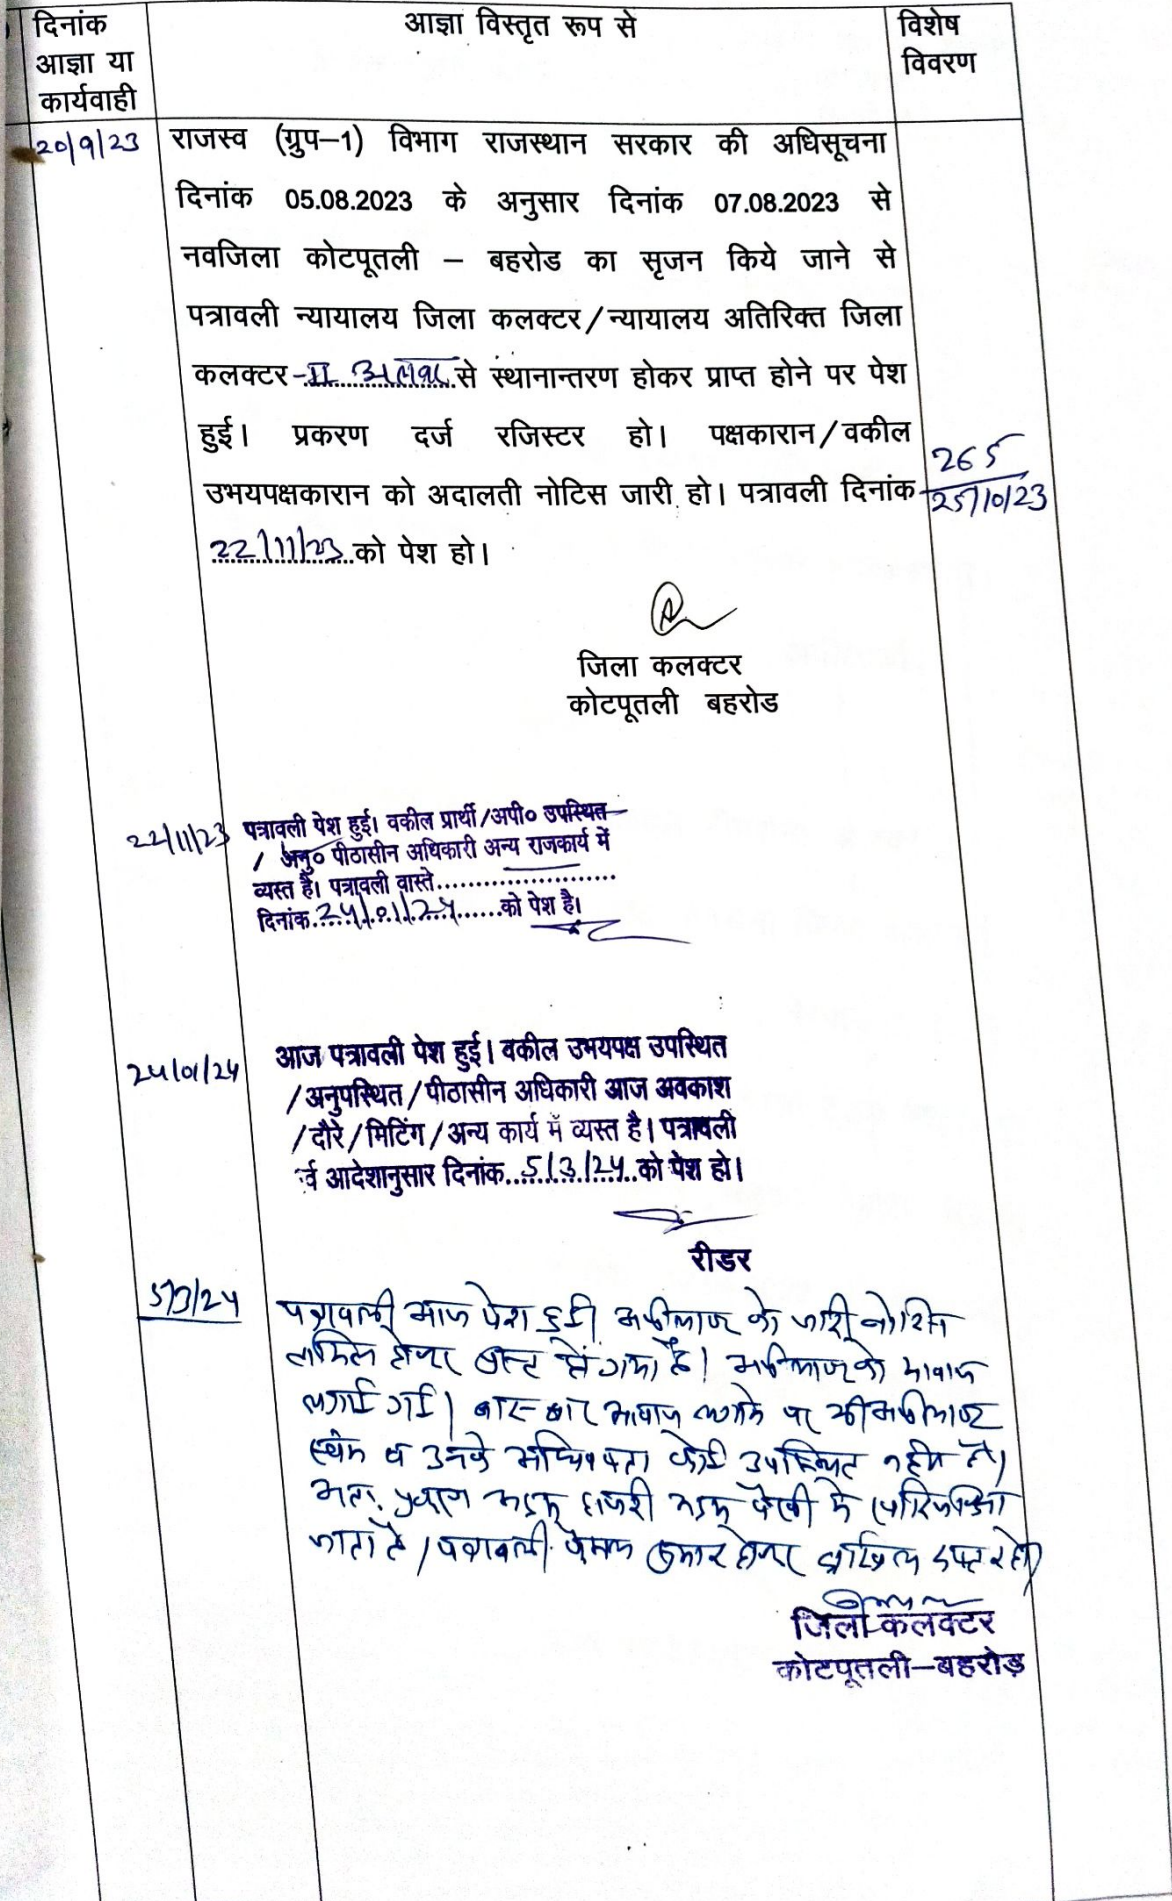 दिनांक
आज्ञा या
कार्यवाही
आज्ञा विस्तृत रूप से
विशेष
विवरण
20/9/23
राजस्व (ग्रुप–1) विभाग राजस्थान सरकार की अधिसूचना
दिनांक 05.08.2023 के अनुसार दिनांक 07.08.2023 से
नवजिला कोटपूतली – बहरोड का सृजन किये जाने से
पत्रावली न्यायालय जिला कलक्टर/न्यायालय अतिरिक्त जिला
कलक्टर-II अलवर से स्थानान्तरण होकर प्राप्त होने पर पेश
हुई। प्रकरण दर्ज रजिस्टर हो। पक्षकारान/वकील
उभयपक्षकारान को अदालती नोटिस जारी हो। पत्रावली दिनांक
22/11/23 को पेश हो।
265
25/10/23
जिला कलक्टर
कोटपूतली बहरोड
22/11/23
पत्रावली पेश हुई। वकील प्रार्थी/अपी० उपस्थित
/ अनु० पीठासीन अधिकारी अन्य राजकार्य में
व्यस्त है। पत्रावली वास्ते......................
दिनांक..24/01/24......को पेश है।
24/01/24
आज पत्रावली पेश हुई। वकील उभयपक्ष उपस्थित
/अनुपस्थित/पीठासीन अधिकारी आज अवकाश
/दौरे/मिटिंग/अन्य कार्य में व्यस्त है। पत्रावली
र्व आदेशानुसार दिनांक..5/3/24..को पेश हो।
रीडर
5/3/24
पत्रावली आज पेश हुई। अपीलान्ट को जारी नोटिस
तामिल होकर प्राप्त हो गया है। अपीलान्ट को आवाज
लगाई गई। बार-बार आवाज लगाने पर भी अपीलान्ट
स्वंय व उनके अधिवक्ता कोई उपस्थित नहीं है।
अतः प्रकरण अदम हाजरी अदम पैरवी में खारिज किया
जाता है। पत्रावली फैसल शुमार होकर दाखिल दफ्तर हो।
जिला कलक्टर
कोटपूतली–बहरोड़